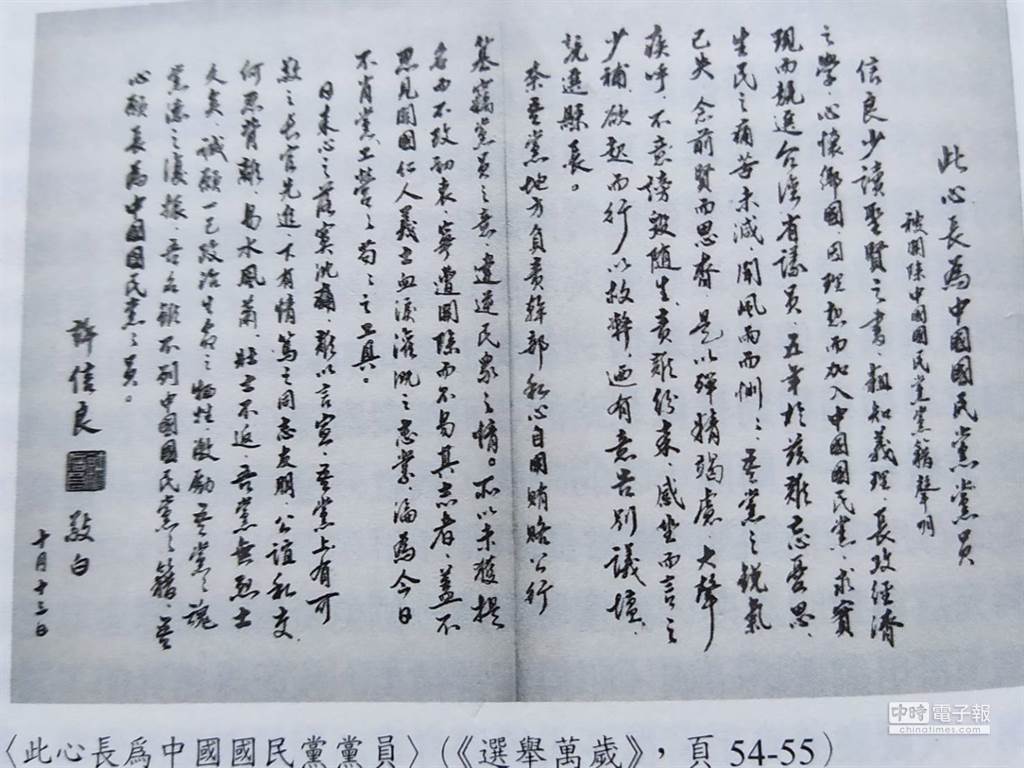 此心長為中國國民黨黨員
被開除中國國民黨黨籍聲明
信良少讀聖賢之書、粗知義理、長攻經濟
之學、心懷鄉國、因理想而加入中國國民黨、求實
現而競選台灣省議員、五年於茲難忘憂思、
生民之痛苦未減、聞風雨而惻々、吾黨之銳氣
已失、念前賢而思齊、是以殫精竭慮、大聲
疾呼、不意謗毀隨生、責難紛來、感坐而言之
少補、欲起而行以救弊、迺有意告別議壇、
競選縣長。
奈吾黨地方負責幹部私心自用賄賂公行
篡竊黨員之意、違逆民眾之情。所以未獲提
名而不改初衷、寧遭開除而不易其志者、蓋不
忍見開國仁人義士血淚灌溉之志業、淪為今日
不肖黨工營々苟々之工具。
日來心之落寞沈痛、難以言宣、吾黨上有可
敬之長官先進、下有情篤之同志友朋、公誼私交、
何思背離、易水風蕭、壯士不返、吾黨無烈士
久矣、誠願一己政治生命之犧牲激勵吾黨之魂
黨德之復振、吾名雖不列中國國民黨之籍、吾
心願長為中國國民黨之員。
許信良 敬白
十月十三日
中時電子報
chinatimes.com
〈此心長爲中國國民黨黨員〉(《選舉萬歲》，頁 54-55)